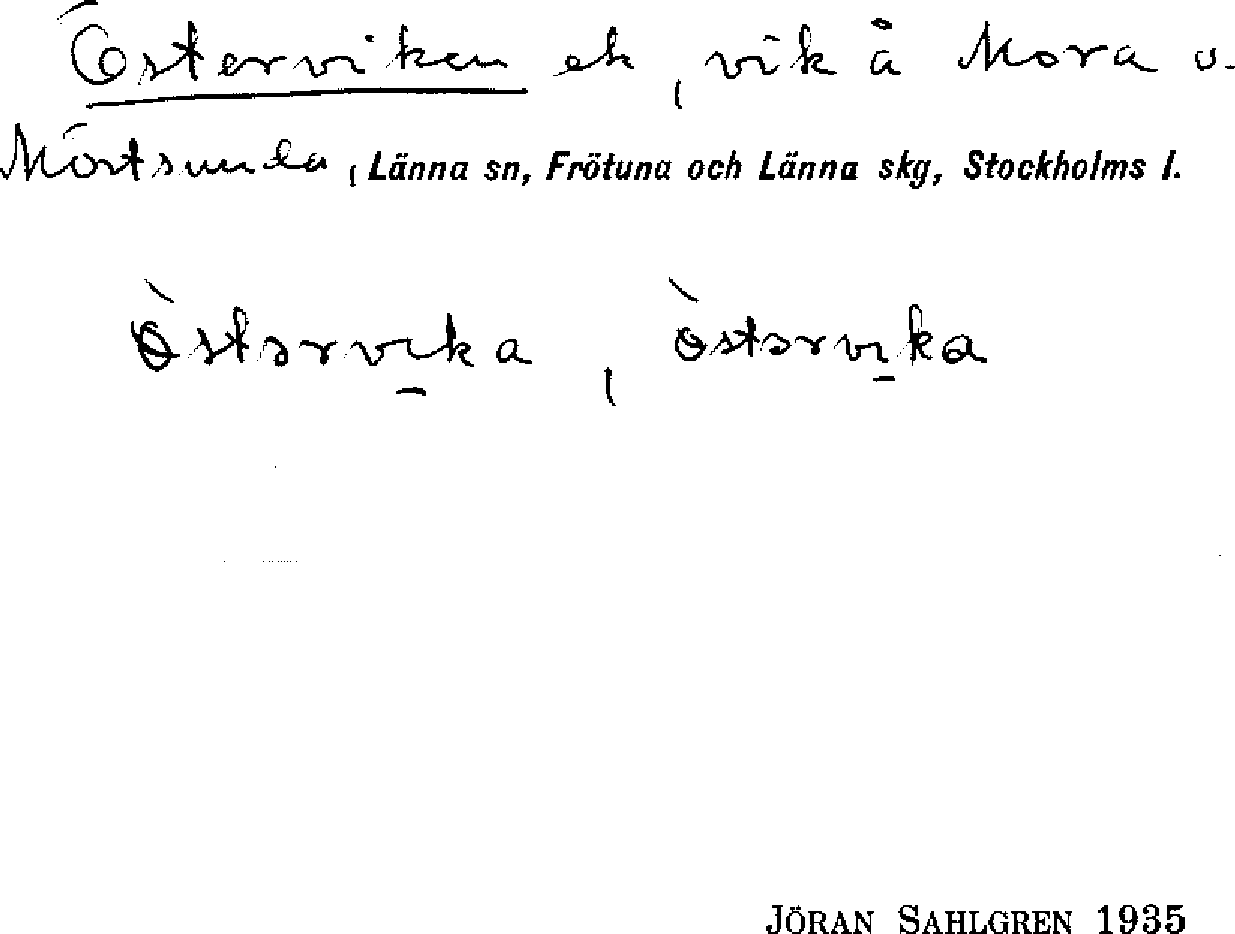 Österviken ek, vik å Mora o.
Mörtsunda, Länna sn, Frötuna och Länna skg, Stockholms l.
Ö̀stərvi̱ka, ö̀stərvi̱ka
JÖRAN SAHLGREN 1935